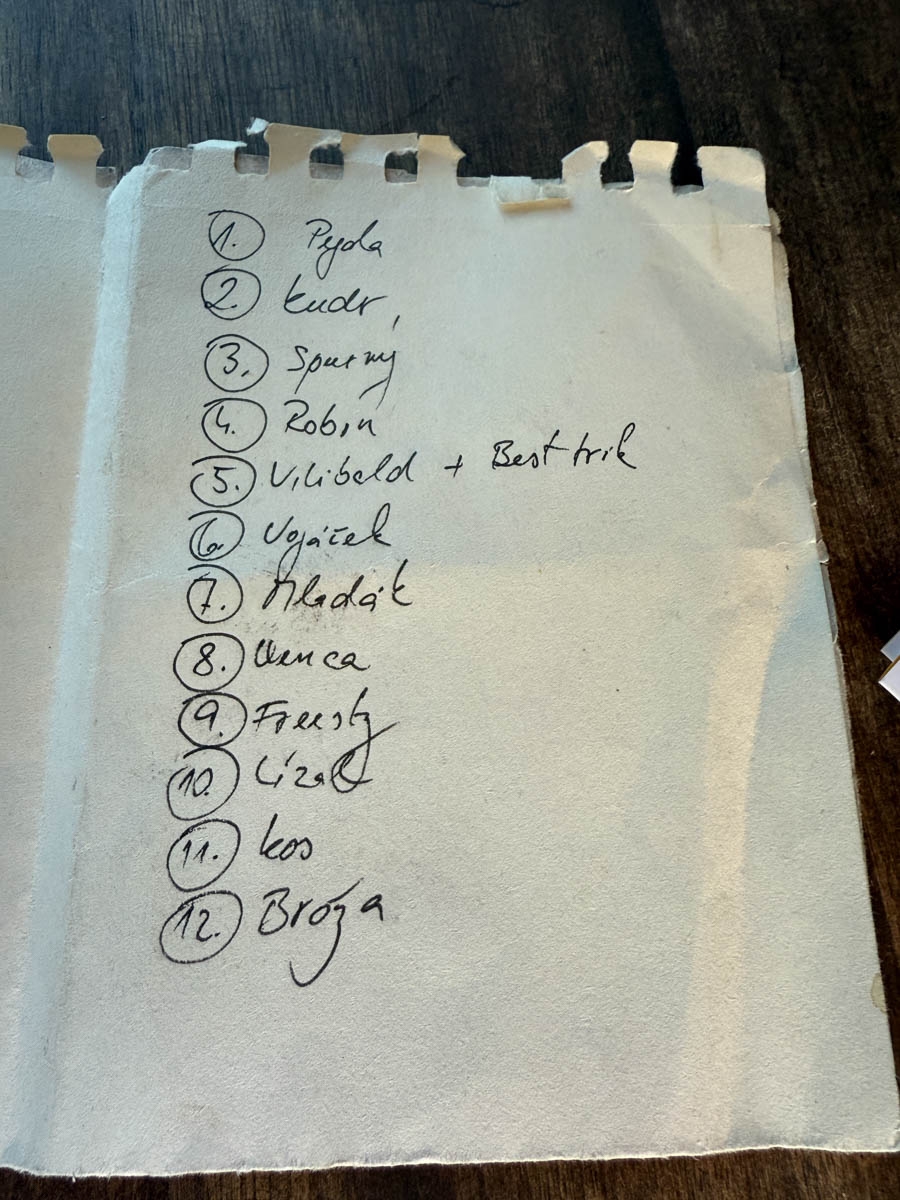 1. Pejda
2. Kudr
3. Spurný
4. Robin
5. Vilibald + Best trik
6. Vojáček
7. Mladák
8. Venca
9. Freesty
10. Lízal
11. Kos
12. Bróža